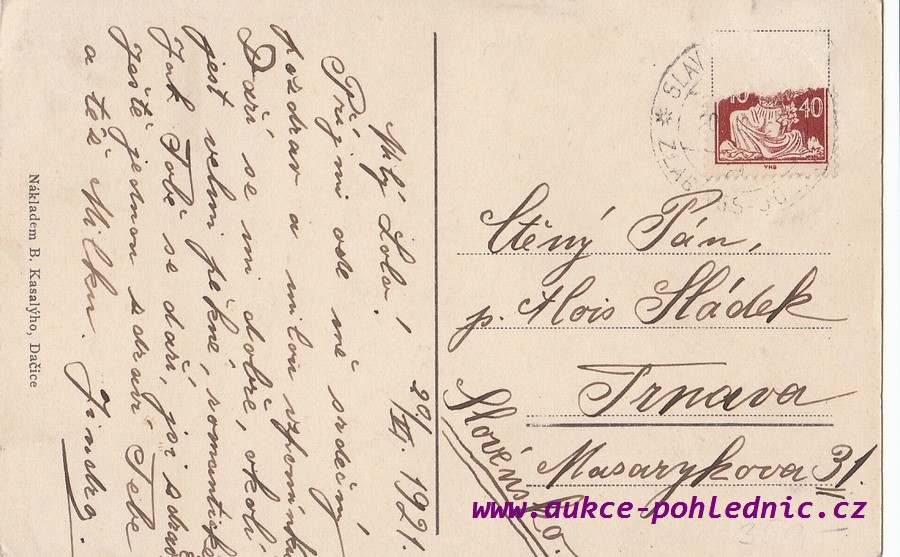 Milý Lolo!
20/VI. 1921.
Přijmi ode mě srdečný
pozdrav a milou vzpomínku
Daří se mi dobře, okolí
jest velmi pěkné, romantické
Jak Tobě se daří, jsi zdráv
Ještě jednou zdraví Tebe
a též Milku. Jindra.
Nákladem B. Kasalýho, Dačice
40
VHS
* SLAV
Ctěný Pán,
p. Alois Sládek
Trnava
Masarykova 31.
Slovensko.
www.aukce-pohlednic.cz